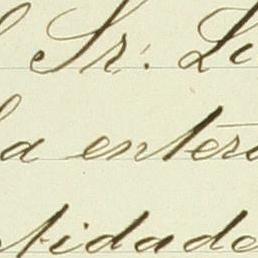 Sr. Li
la entera
tidade